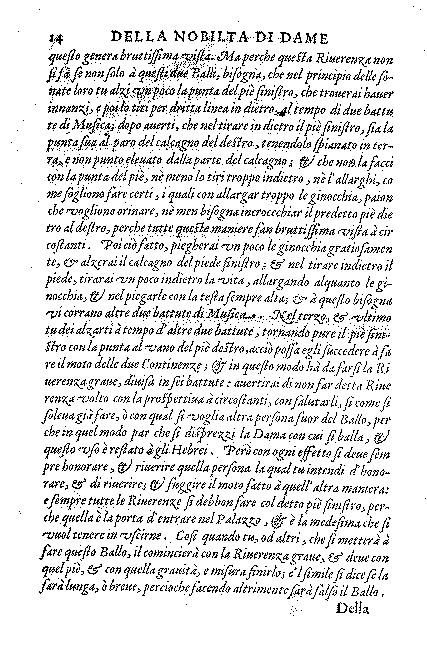 14 DELLA NOBILTA DI DAME
questo genera bruttissima vista. Ma perche questa Riuerenza non
si fà se non solo à questi due Balli, bisogna, che nel principio delle so-
nate loro tu alzi vn poco la punta del piè sinistro, che trouerai hauer
innanzi, e poi lo tiri per dritta linea in dietro al tempo di due battu
te di Musica; dopo auerti, che nel tirare in dietro il piè sinistro, sia la
punta sua al paro del calcagno del destro, tenendolo spianato in ter-
ra, e non punto eleuato dalla parte del calcagno; & che non la facci
con la punta del piè, nè meno lo tiri troppo indietro, nè l'allarghi, co
me sogliono fare certi, i quali con allargar troppo le ginocchia, paion
che vogliono orinare, nè men bisogna incrocechiar il predetto piè die
tro al destro, perche tutte queste maniere fan bruttissima vista à cir
costanti. Poi ciò fatto, piegherai vn poco le ginocchia gratiosamen
te, & alzerai il calcagno del piede sinistro; & nel tirare indietro il
piede, tirarai vn poco indietro la vita, allargando alquanto le gi-
nocchia, & nel piegarle con la testa sempre alta; & à questo bisogna
vi corrano altre due battute di Musica. Nel terzo, & vltimo
tu dei alzarti à tempo d'altre due battute, tornando pure il piè sini-
stro con la punta al vano del piè destro, acciò possa egli succedere à fa
re il moto delle due Continenze; & in questo modo hà da farsi la Ri
uerenza graue, diuisa in sei battute: auertirai di non far detta Riue
renza volto con la prospettiua à circostanti, con salutarli, si come si
soleua già fare, ò con qual si voglia altra persona fuor del Ballo, per
che in quel modo par che si disprezzi la Dama con cui si balla, &
questo vso è restato à gli Hebrei. Però con ogni effetto si deue sem
pre honorare, & riuerire quella persona la qual tu intendi d'hono-
rare, & di riuerire; & fuggire il moto fatto à quell'altra maniera:
e sempre tutte le Riuerenze si debbon fare col detto piè sinistro, per-
che quella è la porta d'entrare nel Palazzo, & è la medesima che si
vuol tenere in vscirne. Così quando tu, od altri, che si metterà à
fare questo Ballo, il comincierà con la Riuerenza graue, & deue con
quel piè, & con quella grauità, e misura finirlo; e'l simile si dice se la
farà lunga, ò breue, percioche facendo altrimente sarà falso il Ballo.
Della